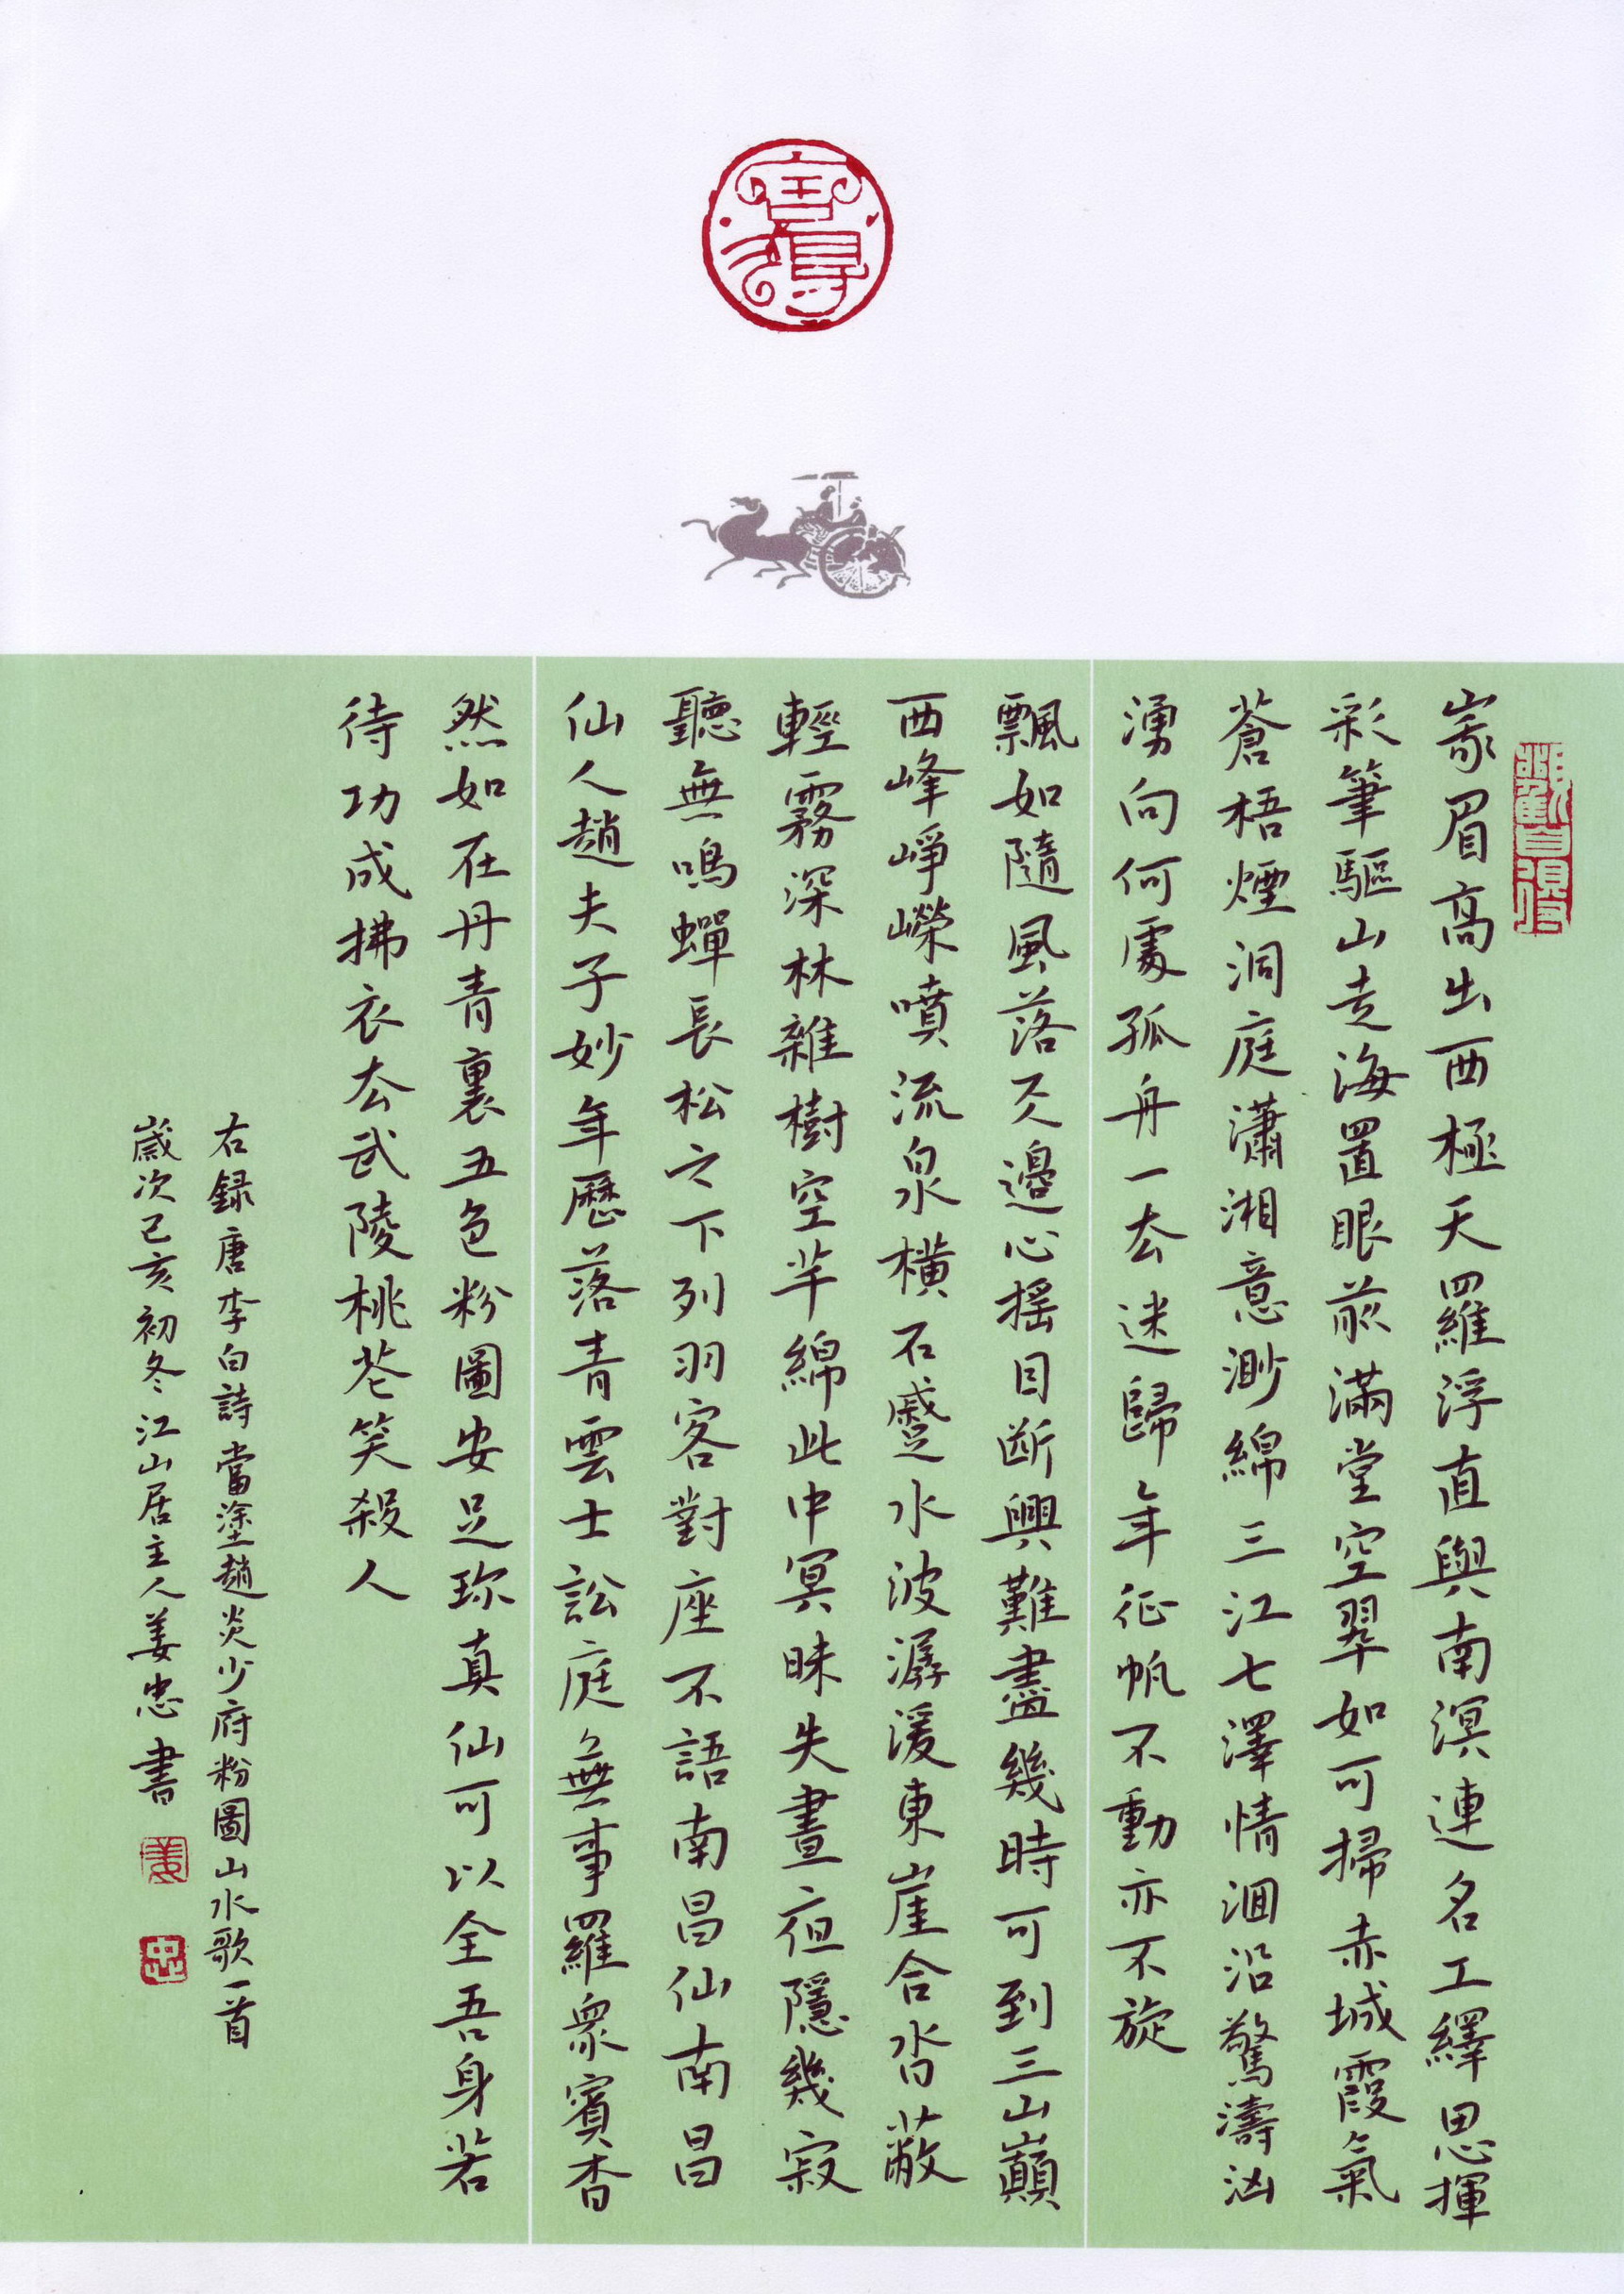 觀自得
峩眉高出西極天羅浮直與南溟連名工繹思揮
彩筆驅山走海置眼前滿堂空翠如可掃赤城霞氣
蒼梧煙洞庭瀟湘意渺綿三江七澤情洄沿驚濤洶
湧向何處孤舟一去迷歸年征帆不動亦不旋
飄如隨風落天邊心搖目断興難盡幾時可到三山巔
西峰崢嶸噴流泉橫石蹙水波潺湲東崖合沓蔽
輕霧深林雜樹空芊綿此中冥昧失晝夜隱幾寂
聽無鳴蟬長松之下列羽客對座不語南昌仙南昌
仙人趙夫子妙年歷落青雲士訟庭無事羅衆賓杳
然如在丹青裏五色粉圖安足珍真仙可以全吾身若
待功成拂衣去武陵桃花笑殺人
右録唐李白詩當塗趙炎少府粉圖山水歌一首
歲次己亥初冬江山居主人姜忠書
姜
忠